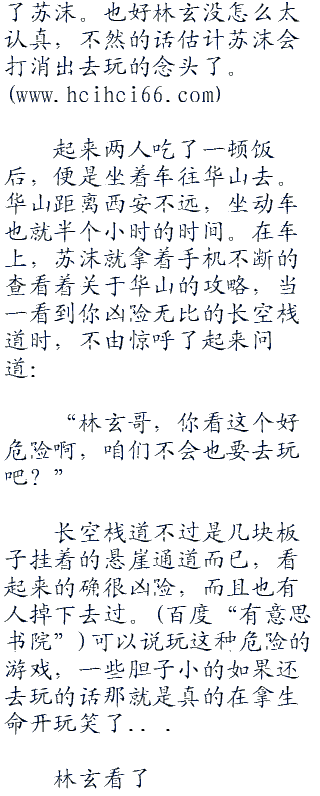 了苏沫。也好林玄没怎么太
认真，不然的话估计苏沫会
打消出去玩的念头了。
(www.hcihci66.com)
起来两人吃了一顿饭
后，便是坐着车往华山去。
华山距离西安不远，坐动车
也就半个小时的时间。在车
上，苏沫就拿着手机不断的
查看着关于华山的攻略，当
一看到你凶险无比的长空栈
道时，不由惊呼了起来问
道：
“林玄哥，你看这个好
危险啊，咱们不会也要去玩
吧？”
长空栈道不过是几块板
子挂着的悬崖通道而已，看
起来的确很凶险，而且也有
人掉下去过。(百度“有意思
书院”)可以说玩这种危险的
游戏，一些胆子小的如果还
去玩的话那就是真的在拿生
命开玩笑了．．．
林玄看了